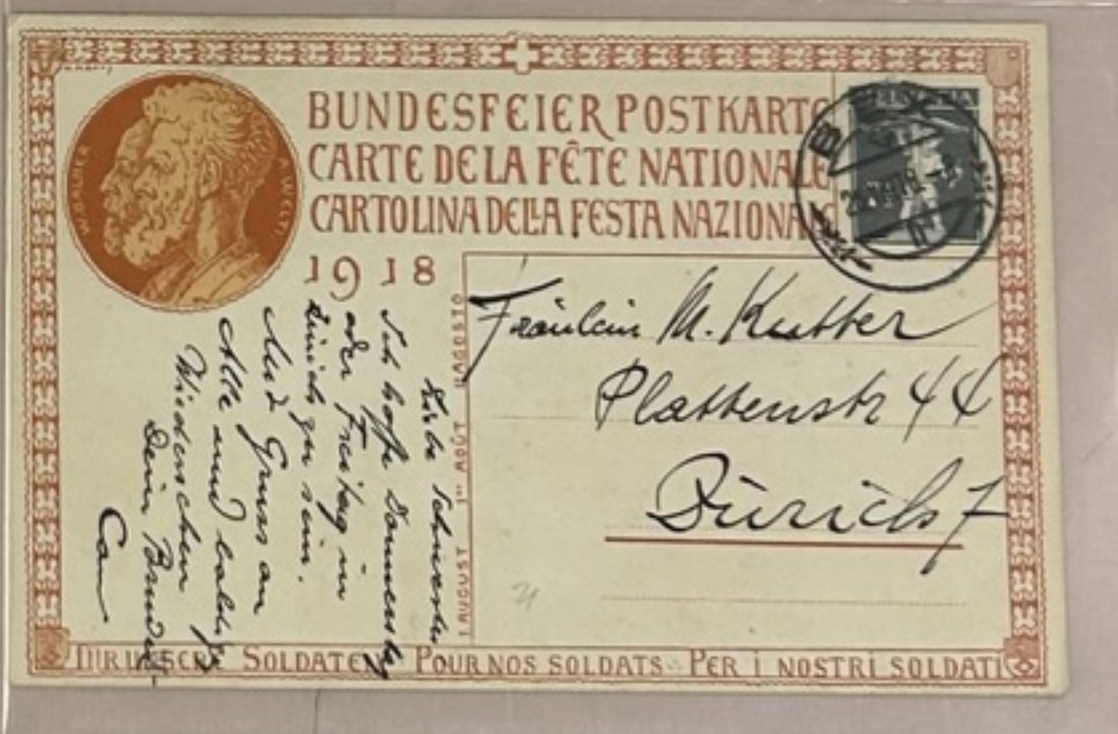 BUNDESFEIER POSTKARTE
CARTE DE LA FÊTE NATIONALE
CARTOLINA DELLA FESTA NAZIONALE
1918
W. BALMER
A. WELTI
HELVETIA
Fräulein M. Kutter
Plattenstr 44
Zürich 7
1 AUGUST 1er AOÛT 1 AGOSTO
Liebe Schwester
Ich hoffe Donnerstag
oder Freitag in
Zürich zu sein.
Mit Gruss an
Alle und baldiges
Wiedersehen
Dein Bruder
FÜR UNSERE SOLDATEN · POUR NOS SOLDATS · PER I NOSTRI SOLDATI